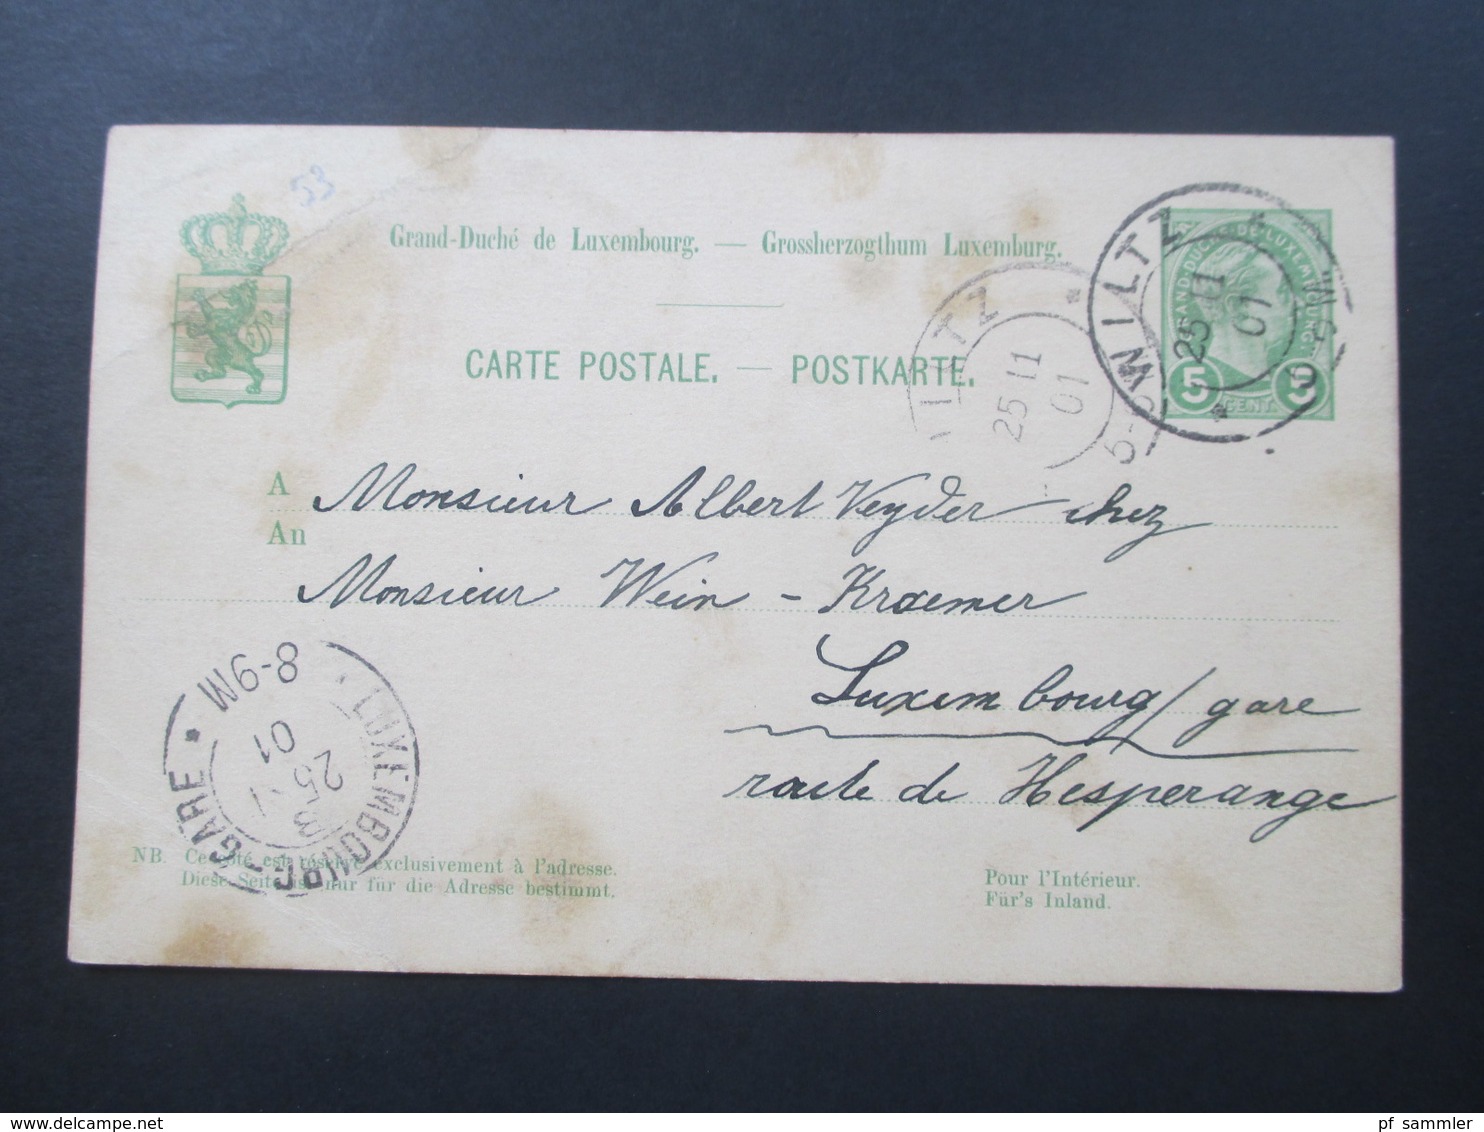 53
Grand-Duché de Luxembourg. — Grossherzogthum Luxemburg.
CARTE POSTALE. — POSTKARTE.
GRAND-DUCHÉ-DE-LUXEMBOURG
5 CENT. 5
WILTZ
25 11
01
5-6M
ILTZ
25 11
01
5-6M
A Monsieur Albert Veyder chez
An
Monsieur Wein - Kraemer
Luxembourg/gare
route de Hesperange
LUXEMBOURG-GARE
8-9M
01
25
NB. Ce côté est réservé exclusivement à l'adresse.
Diese Seite ist nur für die Adresse bestimmt.
Pour l'Intérieur.
Für's Inland.
pf sammler